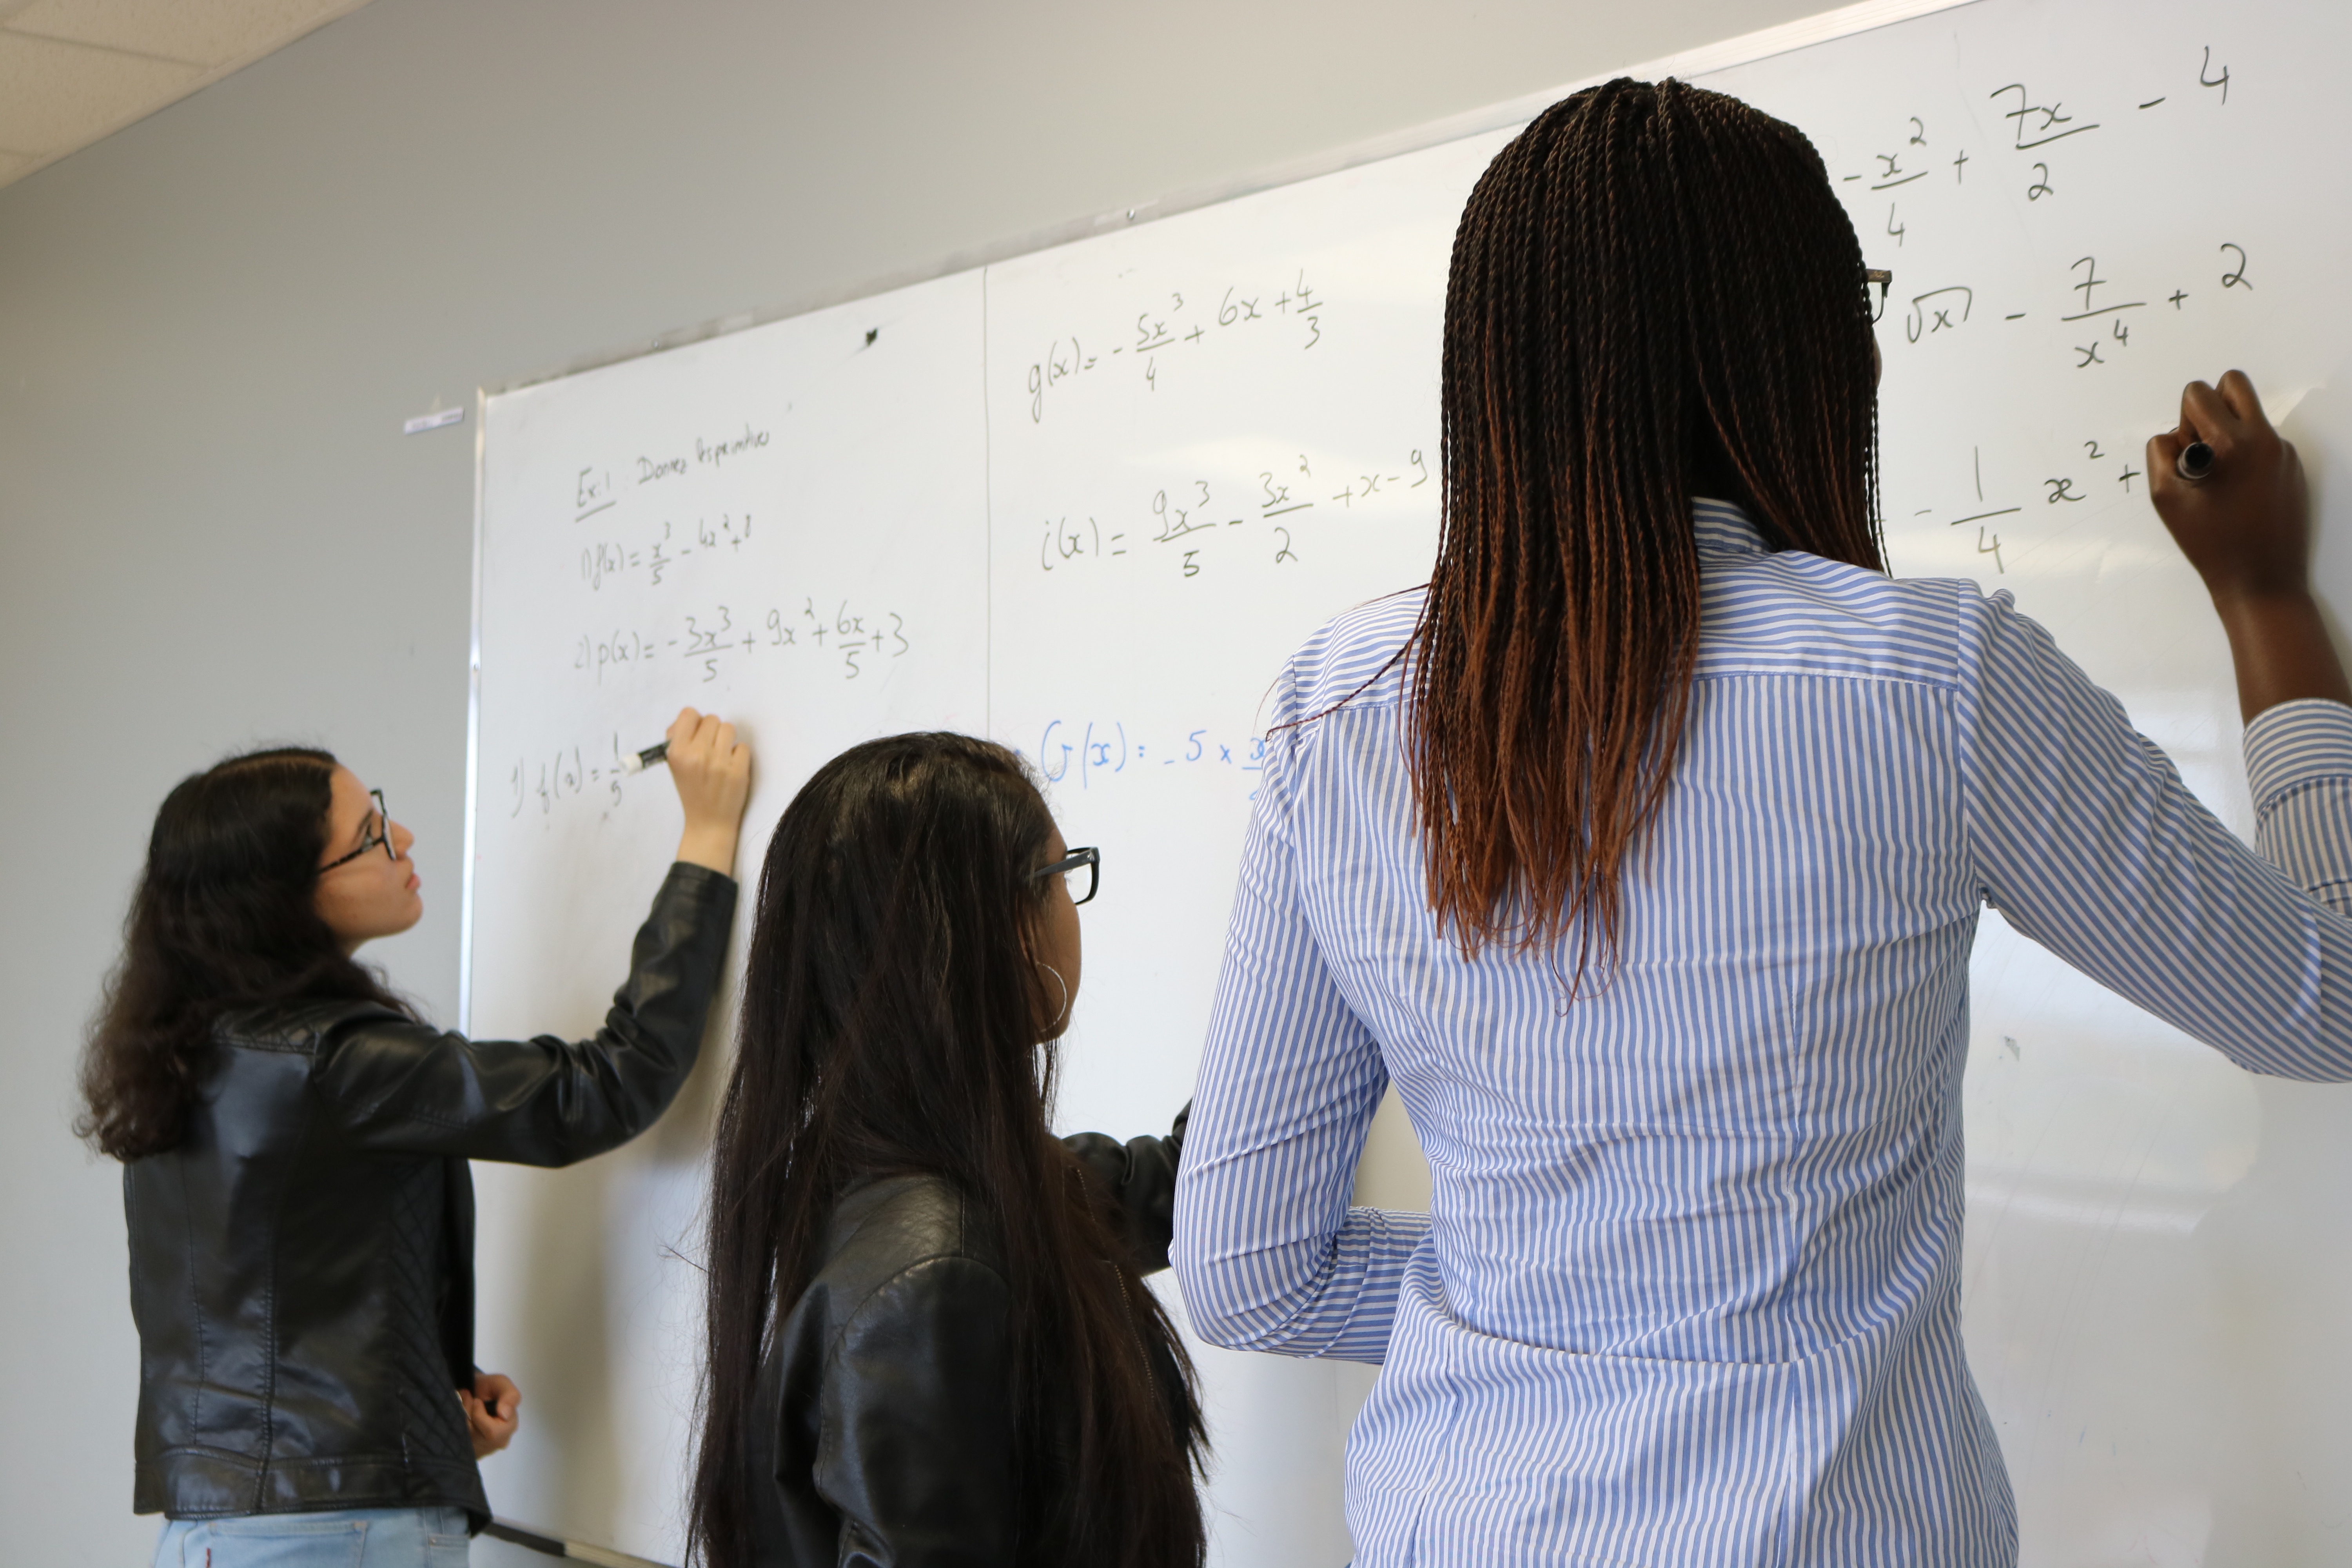 Ex:1 Donner les primitives
1) f(x) = x³/5 - 4x² + 8
2) p(x) = - 3x³/5 + 9x² + 6x/5 + 3
1) f(x) = 1/5
g(x) = - 5x³/4 + 6x + 4/3
i(x) = 9x³/5 - 3x²/2 + x - 9
G(x) = - 5 ×
- x²/4 + 7x/2 - 4
√x - 7/x⁴ + 2
- 1/4 x² +